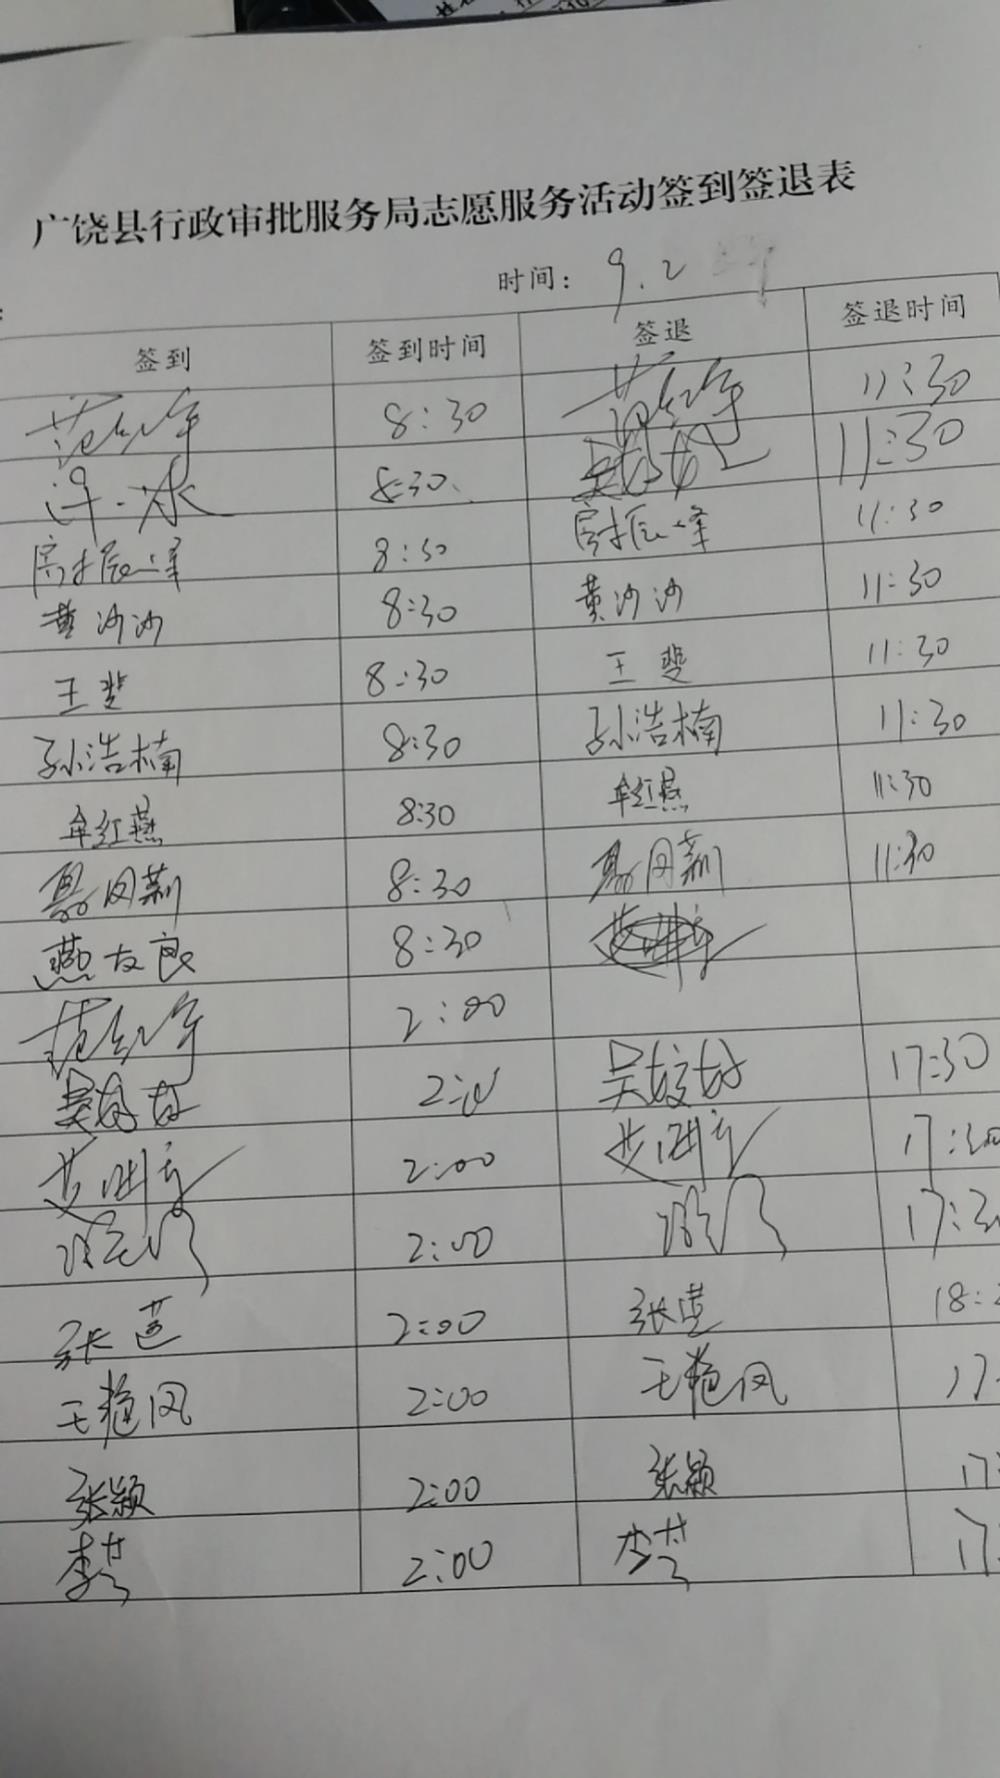 广饶县行政审批服务局志愿服务活动签到签退表
时间: 9.2
签到 签到时间 签退 签退时间
范红军 8:30 范红军 11:30
8:30 11:30
房振峰 8:30 房振峰 11:30
黄沙沙 8:30 黄沙沙 11:30
王斐 8:30 王斐 11:30
孙浩楠 8:30 孙浩楠 11:30
牟红燕 8:30 牟红燕 11:30
8:30 11:30
燕友良 8:30
范红军 2:00
2:00 吴姣姣 17:30
2:00 17:30
2:00 17:30
张莲 2:00 张莲 18:
王艳凤 2:00 王艳凤 17
张颖 2:00 张颖 17:
李芸 2:00 李芸 17: